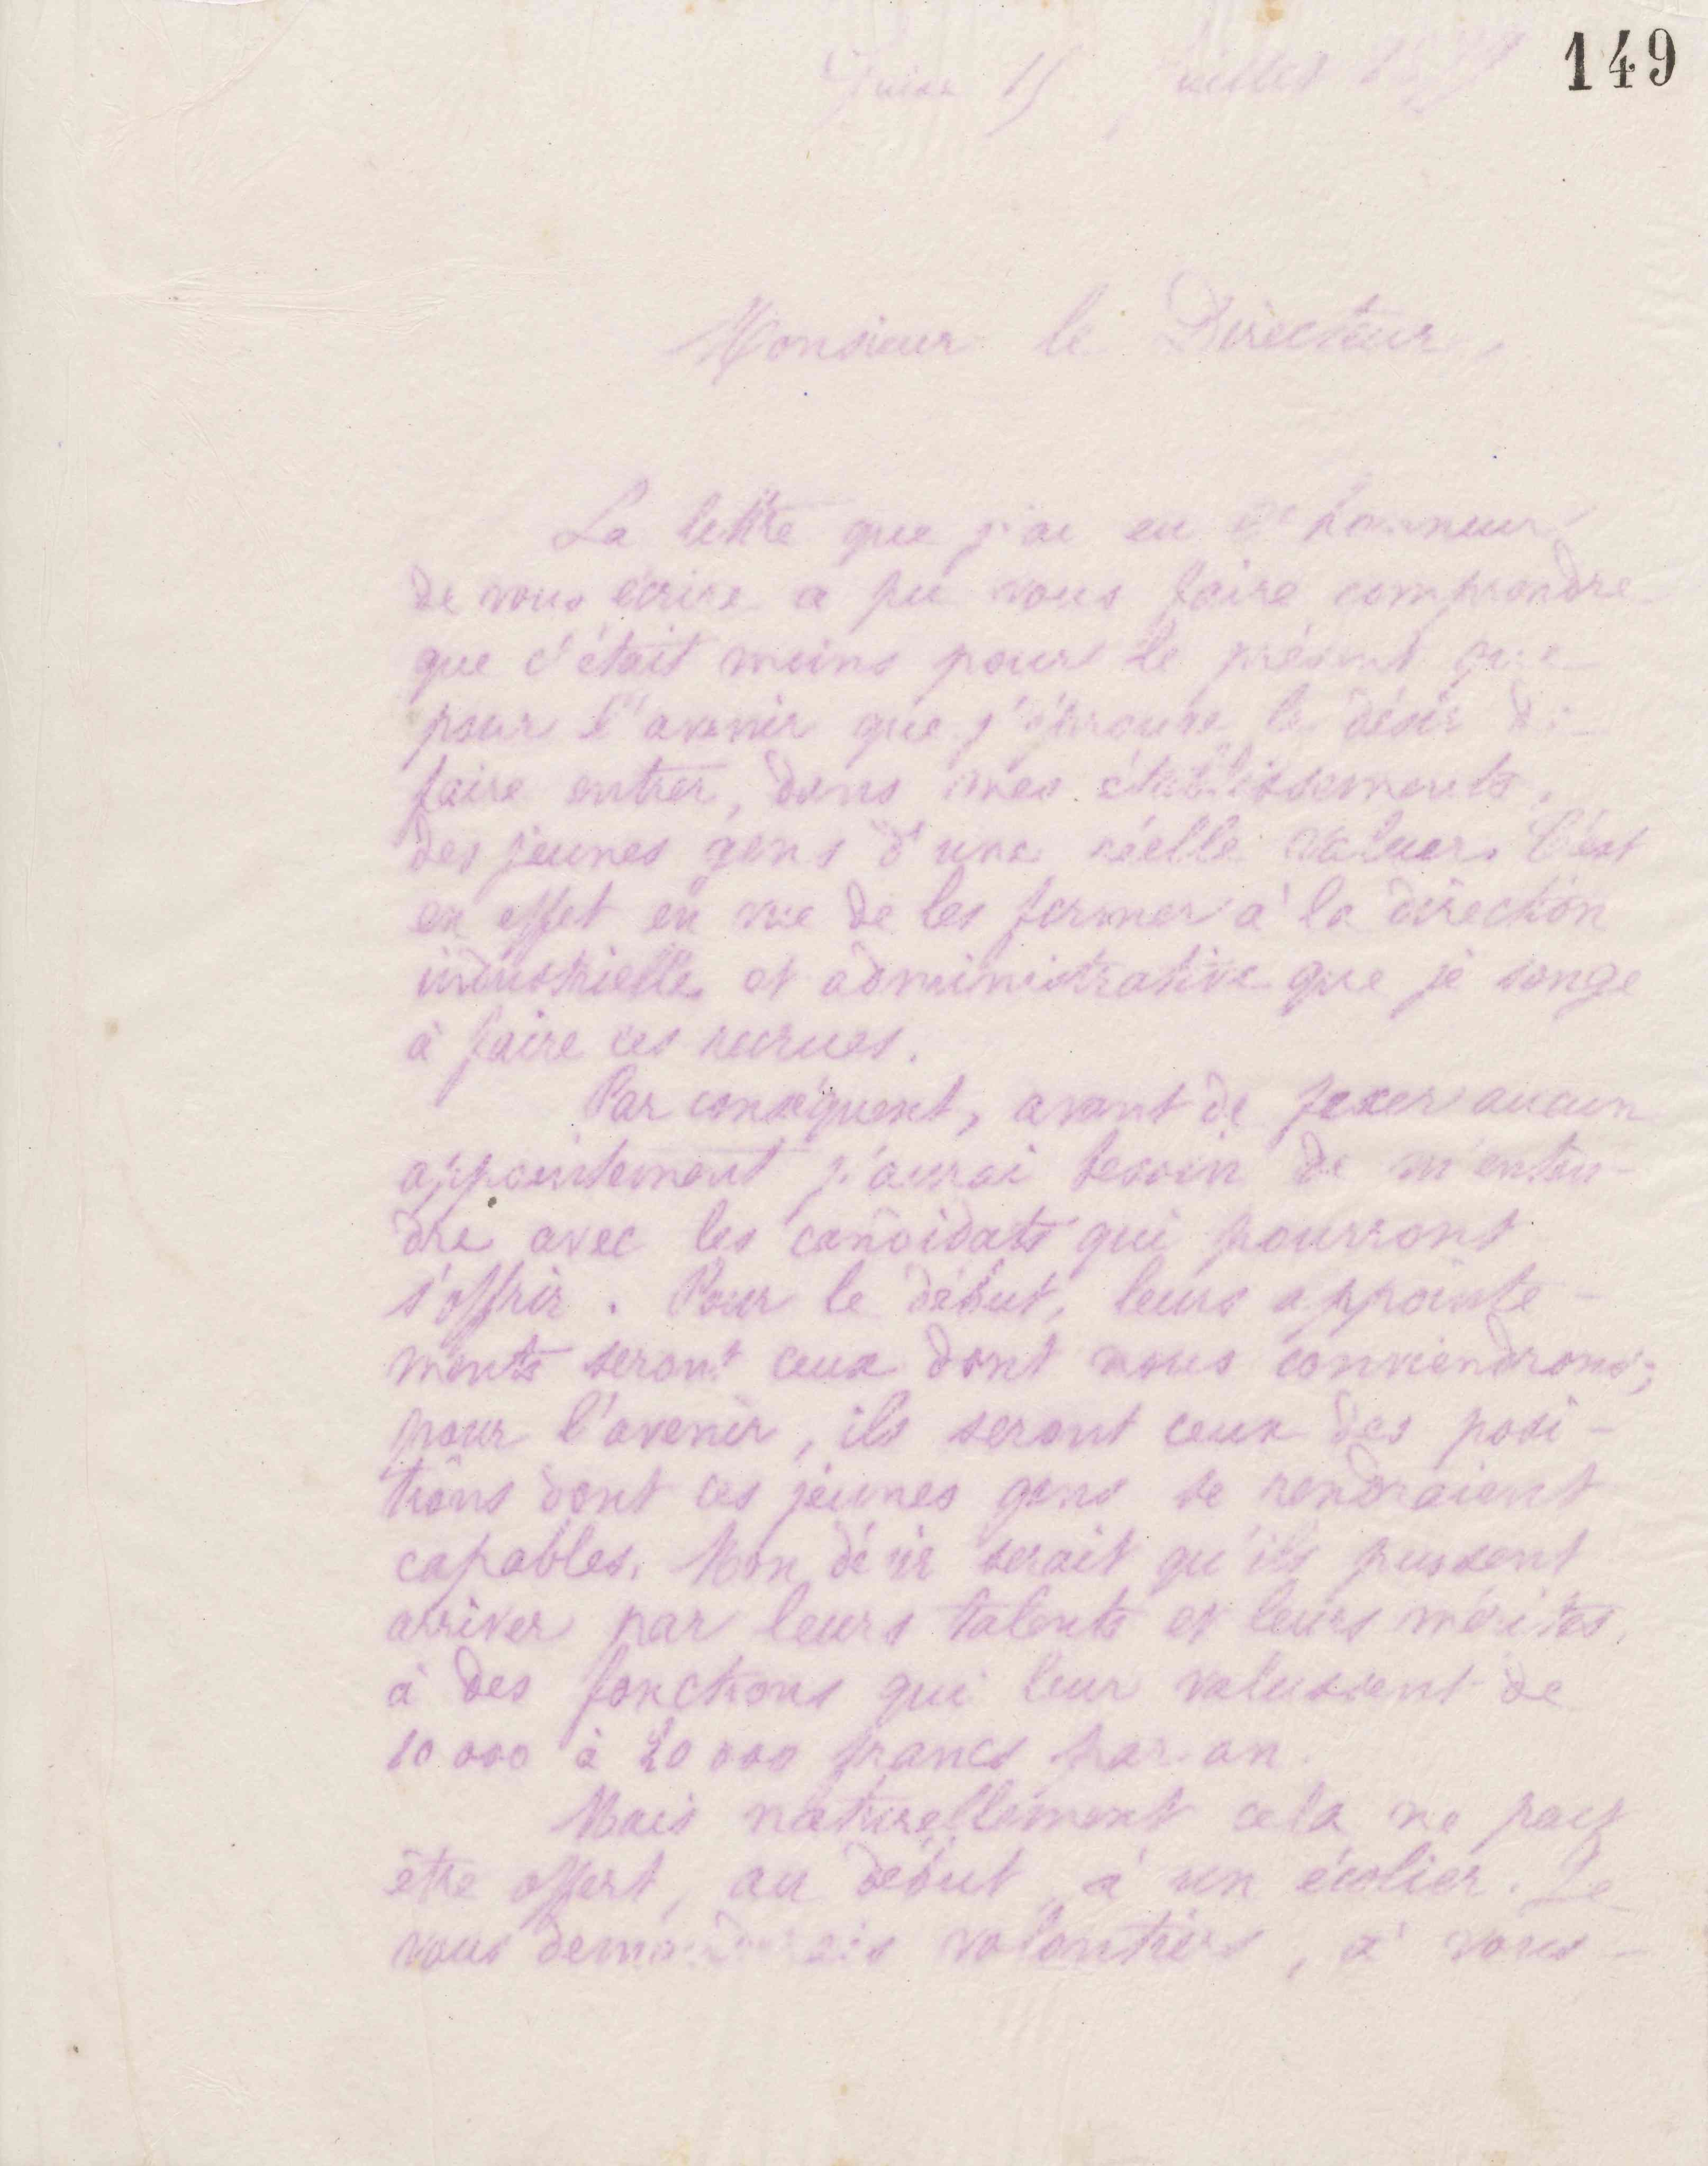 149
Guise 15 Juillet
Monsieur le Directeur,
La lettre que j'ai eu l'honneur
de vous écrire a pu vous faire comprendre
que c'était moins pour le présent que
pour l'avenir que j'éprouve le désir de
faire entrer, dans mes établissements,
des jeunes gens d'une réelle valeur. C'est
en effet en vue de les former à la direction
industrielle et administrative que je songe
à faire ces recrues.
Par conséquent, avant de fixer aucun
appointement j'aurai besoin de m'enten-
dre avec les candidats qui pourront
s'offrir. Pour le début, leurs appointe-
ments seront ceux dont nous conviendrons;
pour l'avenir, ils seront ceux des posi-
tions dont ces jeunes gens se rendraient
capables. Mon désir serait qu'ils pussent
arriver par leurs talents et leurs mérites,
à des fonctions qui leur valussent de
10 000 à 20 000 francs par an.
Mais naturellement cela ne peut
être offert, au début, à un écolier. Je
vous demanderais volontiers, à vous-